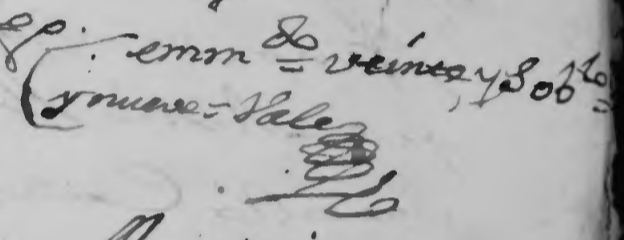 emmdo = veinte, y Sobrro =
y nueve = Vale